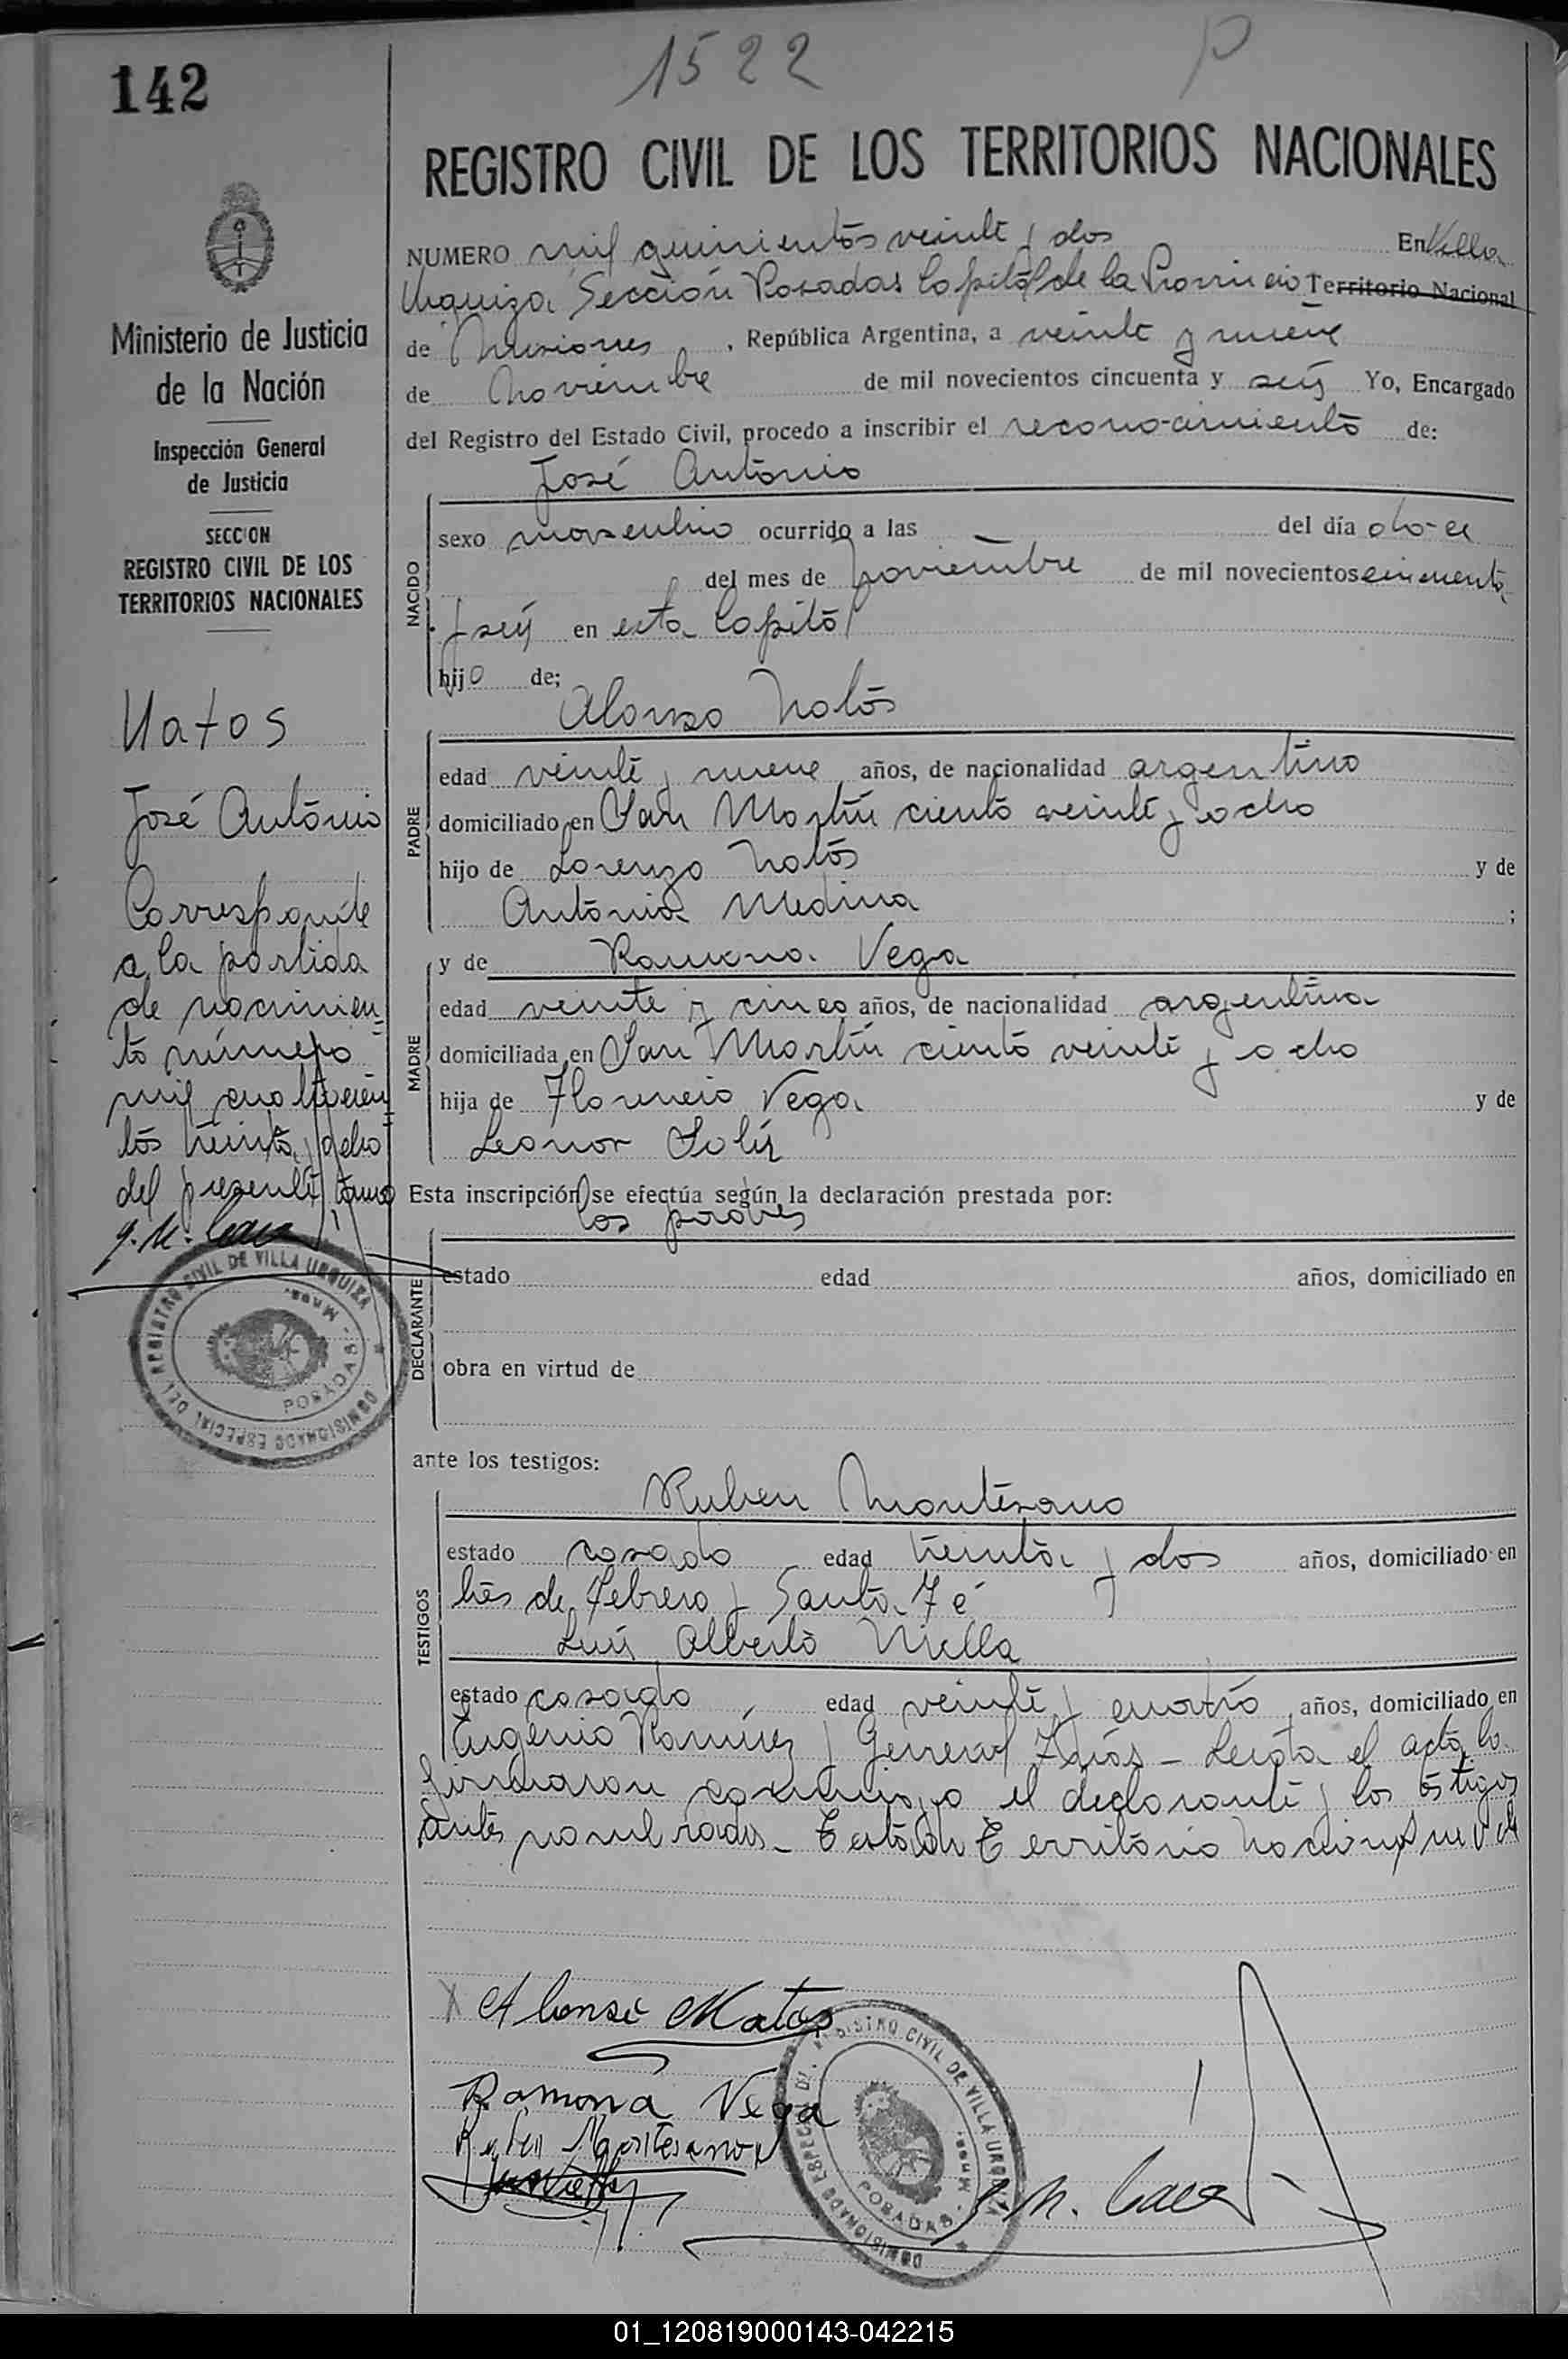 142
1522
P
REGISTRO CIVIL DE LOS TERRITORIOS NACIONALES
Ministerio de Justicia
de la Nación
Inspección General
de Justicia
SECCION
REGISTRO CIVIL DE LOS
TERRITORIOS NACIONALES
Matos
José Antonio
Corresponde
a la partida
de nacimien=
to número
mil cuatrocien=
tos treinta y ocho
del presente tomo
COMISIONADO ESPECIAL DEL REGISTRO CIVIL DE VILLA URQUIZA
POSADAS - Mnes.
NUMERO mil quinientos veinte y dos En Villa
Urquiza Sección Posadas Capital de la Provincia Territorio Nacional
de Misiones, República Argentina, a veinte y nueve
de Noviembre de mil novecientos cincuenta y seis Yo, Encargado
del Registro del Estado Civil, procedo a inscribir el reconocimiento de:
José Antonio
NACIDO
sexo masculino ocurrido a las — del día doce
del mes de Noviembre de mil novecientos cincuenta
y seis en esta Capital
hijo de:
Alonso Matos
PADRE
edad veinte y nueve años, de nacionalidad argentino
domiciliado en San Martín ciento veinte y ocho
hijo de Lorenzo Matos y de
Antonia Medina ;
MADRE
y de Ramona Vega
edad veinte y cinco años, de nacionalidad argentina
domiciliada en San Martín ciento veinte y ocho
hija de Florencio Vega y de
Leonor Solis
Esta inscripción se efectúa según la declaración prestada por:
los padres
DECLARANTE
estado edad años, domiciliado en
obra en virtud de
ante los testigos:
TESTIGOS
Ruben Montesano
estado casado edad treinta y dos años, domiciliado en
tres de Febrero y Santa Fé
Luis Alberto Niella
estado casado edad veinte y cuatro años, domiciliado en
Eugenio Ramírez y General Frías - Leida el acta la
firmaron conmigo el declarante y los testigos
antes nombrados - Testado Territorio Nacional no vale
Alonso Matos
Ramona Vega
Ruben Montesano
COMISIONADO ESPECIAL DEL REGISTRO CIVIL DE VILLA URQUIZA
POSADAS - Mnes.
01_120819000143-042215